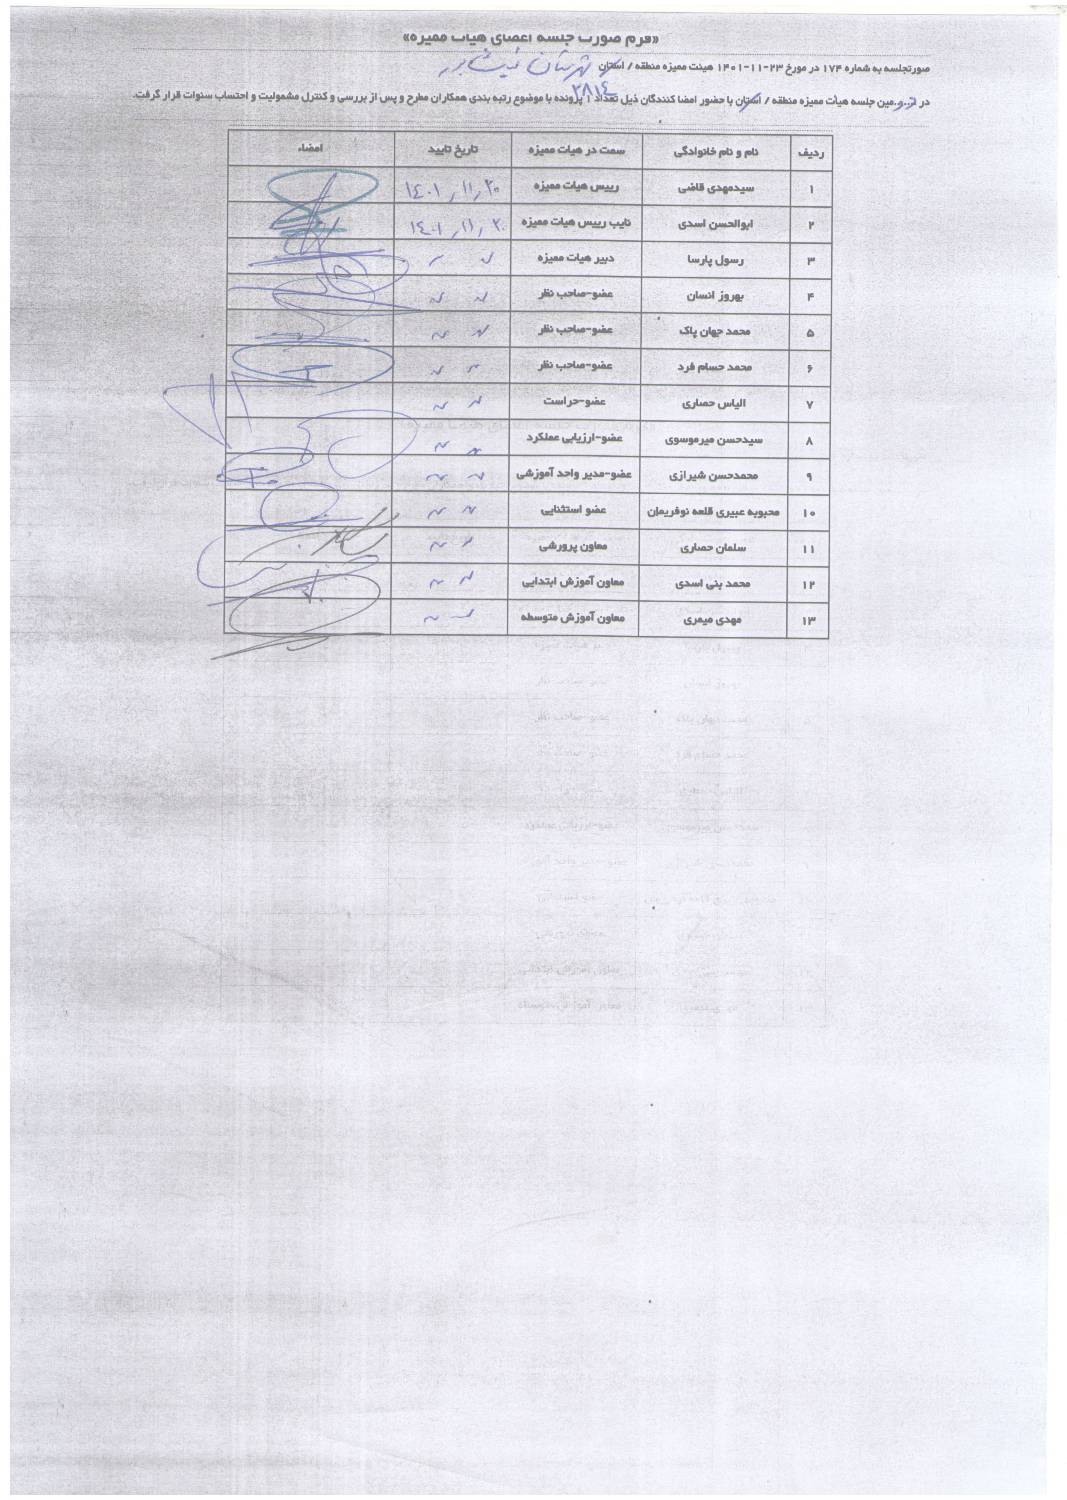 «فرم صورت جلسه اعضای هیات ممیزه»
صورتجلسه به شماره ۱۷۴ در مورخ ۲۳-۱۱-۱۴۰۱ هیئت ممیزه منطقه / استان شهرستان نیشابور
در مین جلسه هیأت ممیزه منطقه / استان با حضور امضا کنندگان ذیل تعداد ۲۸۱۴ پرونده با موضوع رتبه بندی همکاران مطرح و پس از بررسی و کنترل مشمولیت و احتساب سنوات قرار گرفت.
ردیف نام و نام خانوادگی سمت در هیات ممیزه تاریخ تایید امضاء
۱ سیدمهدی قاضی رییس هیات ممیزه ۱۴۰۱٫۱۱٫۲۰
۲ ابوالحسن اسدی نایب رییس هیات ممیزه ۱۴۰۱٫۱۱٫۲۰
۳ رسول پارسا دبیر هیات ممیزه
۴ بهروز انسان عضو-صاحب نظر
۵ محمد جهان پاک عضو-صاحب نظر
۶ محمد حسام فرد عضو-صاحب نظر
۷ الیاس حصاری عضو-حراست
۸ سیدحسن میرموسوی عضو-ارزیابی عملکرد
۹ محمدحسن شیرازی عضو-مدیر واحد آموزشی
۱۰ محبوبه عبیری قلعه نوفریمان عضو استثنایی
۱۱ سلمان حصاری معاون پرورشی
۱۲ محمد بنی اسدی معاون آموزش ابتدایی
۱۳ مهدی میمری معاون آموزش متوسطه